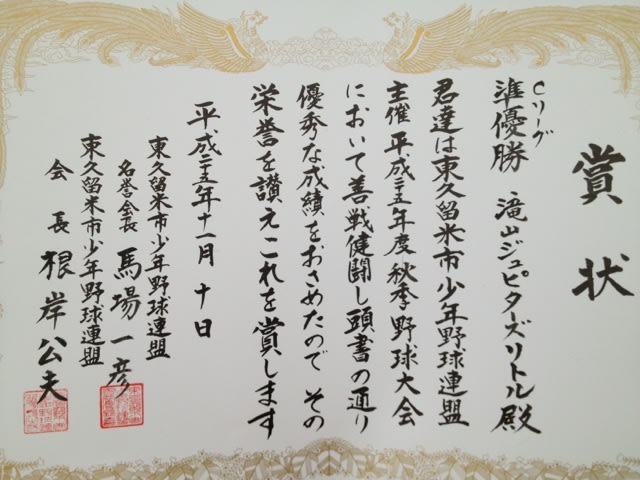 賞状
Cリーグ
準優勝 滝山ジュピターズリトル殿
君達は東久留米市少年野球連盟
主催 平成二十五年度秋季野球大会
において善戦健闘し頭書の通り
優秀な成績をおさめたので その
栄誉を讃えこれを賞します
平成二十五年十一月十日
東久留米市少年野球連盟
名誉会長 馬場一彦
東久留米市少年野球連盟
会長 根岸公夫